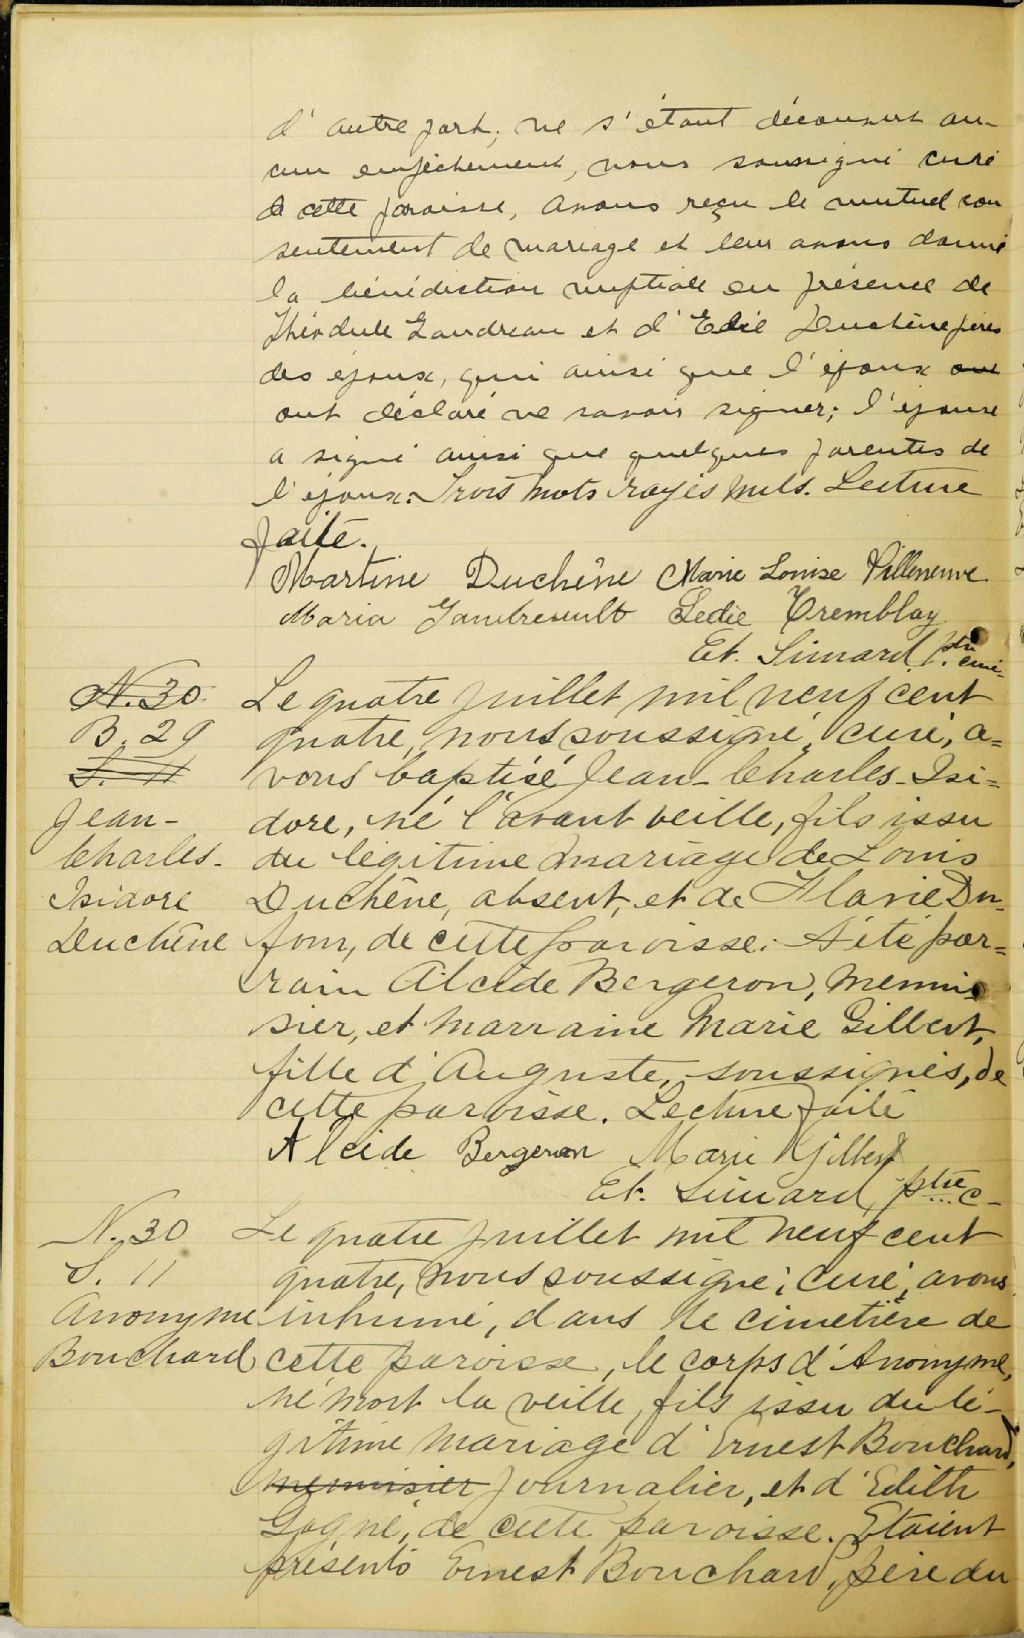 d'autre part; ne s'étant découvert au-
cun empêchement, nous soussigné curé
de cette paroisse, avons reçu le mutuel con
sentement de mariage et leur avons donné
la bénédiction nuptiale en présence de
Théodule Gaudreau et d'Edié Duchêne pères
des époux, qui ainsi que l'époux ont
ont déclaré ne savoir signer; l'épouse
a signé ainsi que quelques parentes de
l'époux. Trois mots rayés nuls. Lecture
faite.
Martine Duchêne Marie Louise Villeneuve
Maria Gaudreault Ledie Tremblay
Et. Simard, ptre curé
N. 30
B. 29
S. 11
Jean-
Charles-
Isidore
Duchêne
Le quatre juillet mil neuf cent
quatre, nous soussigné, curé, a=
vons baptisé Jean-Charles-Isi=
dore, né l'avant veille, fils issu
du légitime mariage de Louis
Duchêne, absent, et de Flavie Du-
four, de cette paroisse. A été par=
rain Alcide Bergeron, menui
sier, et marraine Marie Gilbert,
fille d'Auguste, soussignés, de
cette paroisse. Lecture faite
Alcide Bergeron Marie Gilbert
Et. Simard, ptre c-
N. 30
S. 11
Anonyme
Bouchard
Le quatre juillet mil neuf cent
quatre, nous soussigné, curé, avons
inhumé, dans le cimetière de
cette paroisse, le corps d'Anonyme,
né mort la veille, fils issu du lé-
gitime mariage d'Ernest Bouchard,
menuisier journalier, et d'Edith
Gagné, de cette paroisse. Etaient
présents Ernest Bouchard, père du